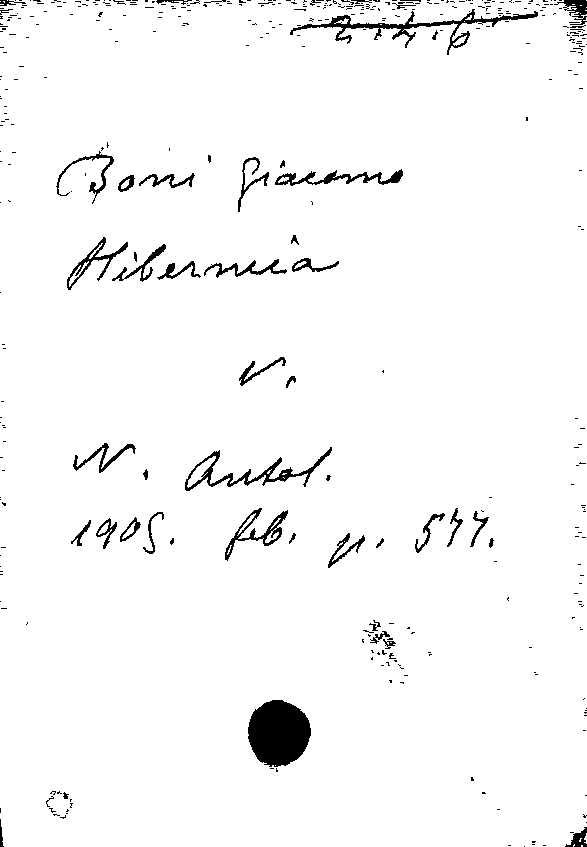 2.4.6
Boni Giacomo
Hibernica
v.
N. Antol.
1905. feb. p. 577.